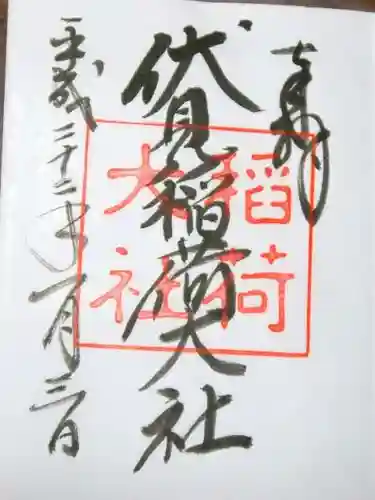 奉拝
伏見稲荷大社
稲荷
大社
平成二十二年一月三日